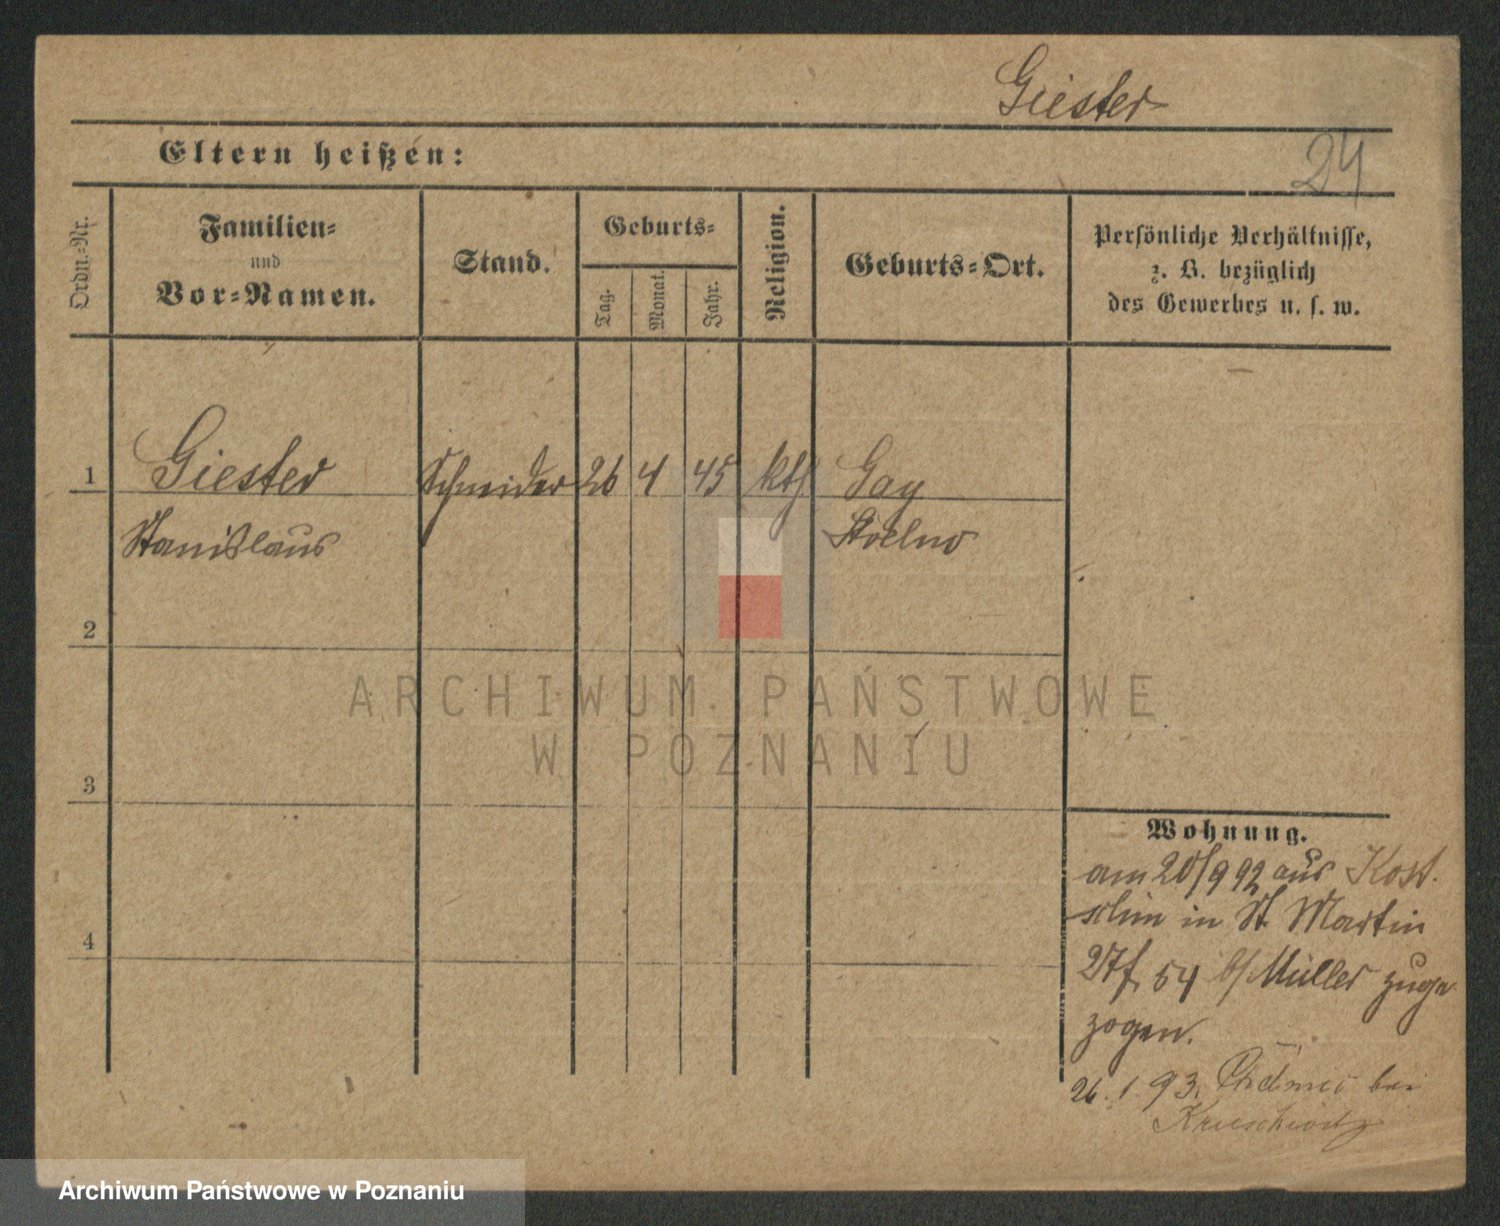 Giester
Eltern heißen:
24
Ordn.-Nr.
Familien-
und
Vor-Namen.
Stand.
Geburts-
Tag.
Monat.
Jahr.
Religion.
Geburts-Ort.
Persönliche Verhältnisse,
z. B. bezüglich
des Gewerbes u. s. w.
1 Giester Schneider 26 4 45 kth Gay
Stanislaus
2
3
4
ARCHIWUM PAŃSTWOWE
W POZNANIU
Wohnung.
am 20/9 92 aus Kost-
schin in St Martin
54 b/ Müller zuge
zogen.
26. 1. 93. bei
Archiwum Państwowe w Poznaniu